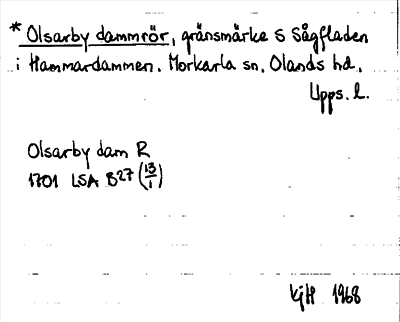 * Olsarby dammrör, gränsmärke S Sågfladen
i Hammardammen. Morkarla sn, Olands hd,
Upps. l.
Olsarby dam R
1701 LSA B27 (13/1)
KjH 1968